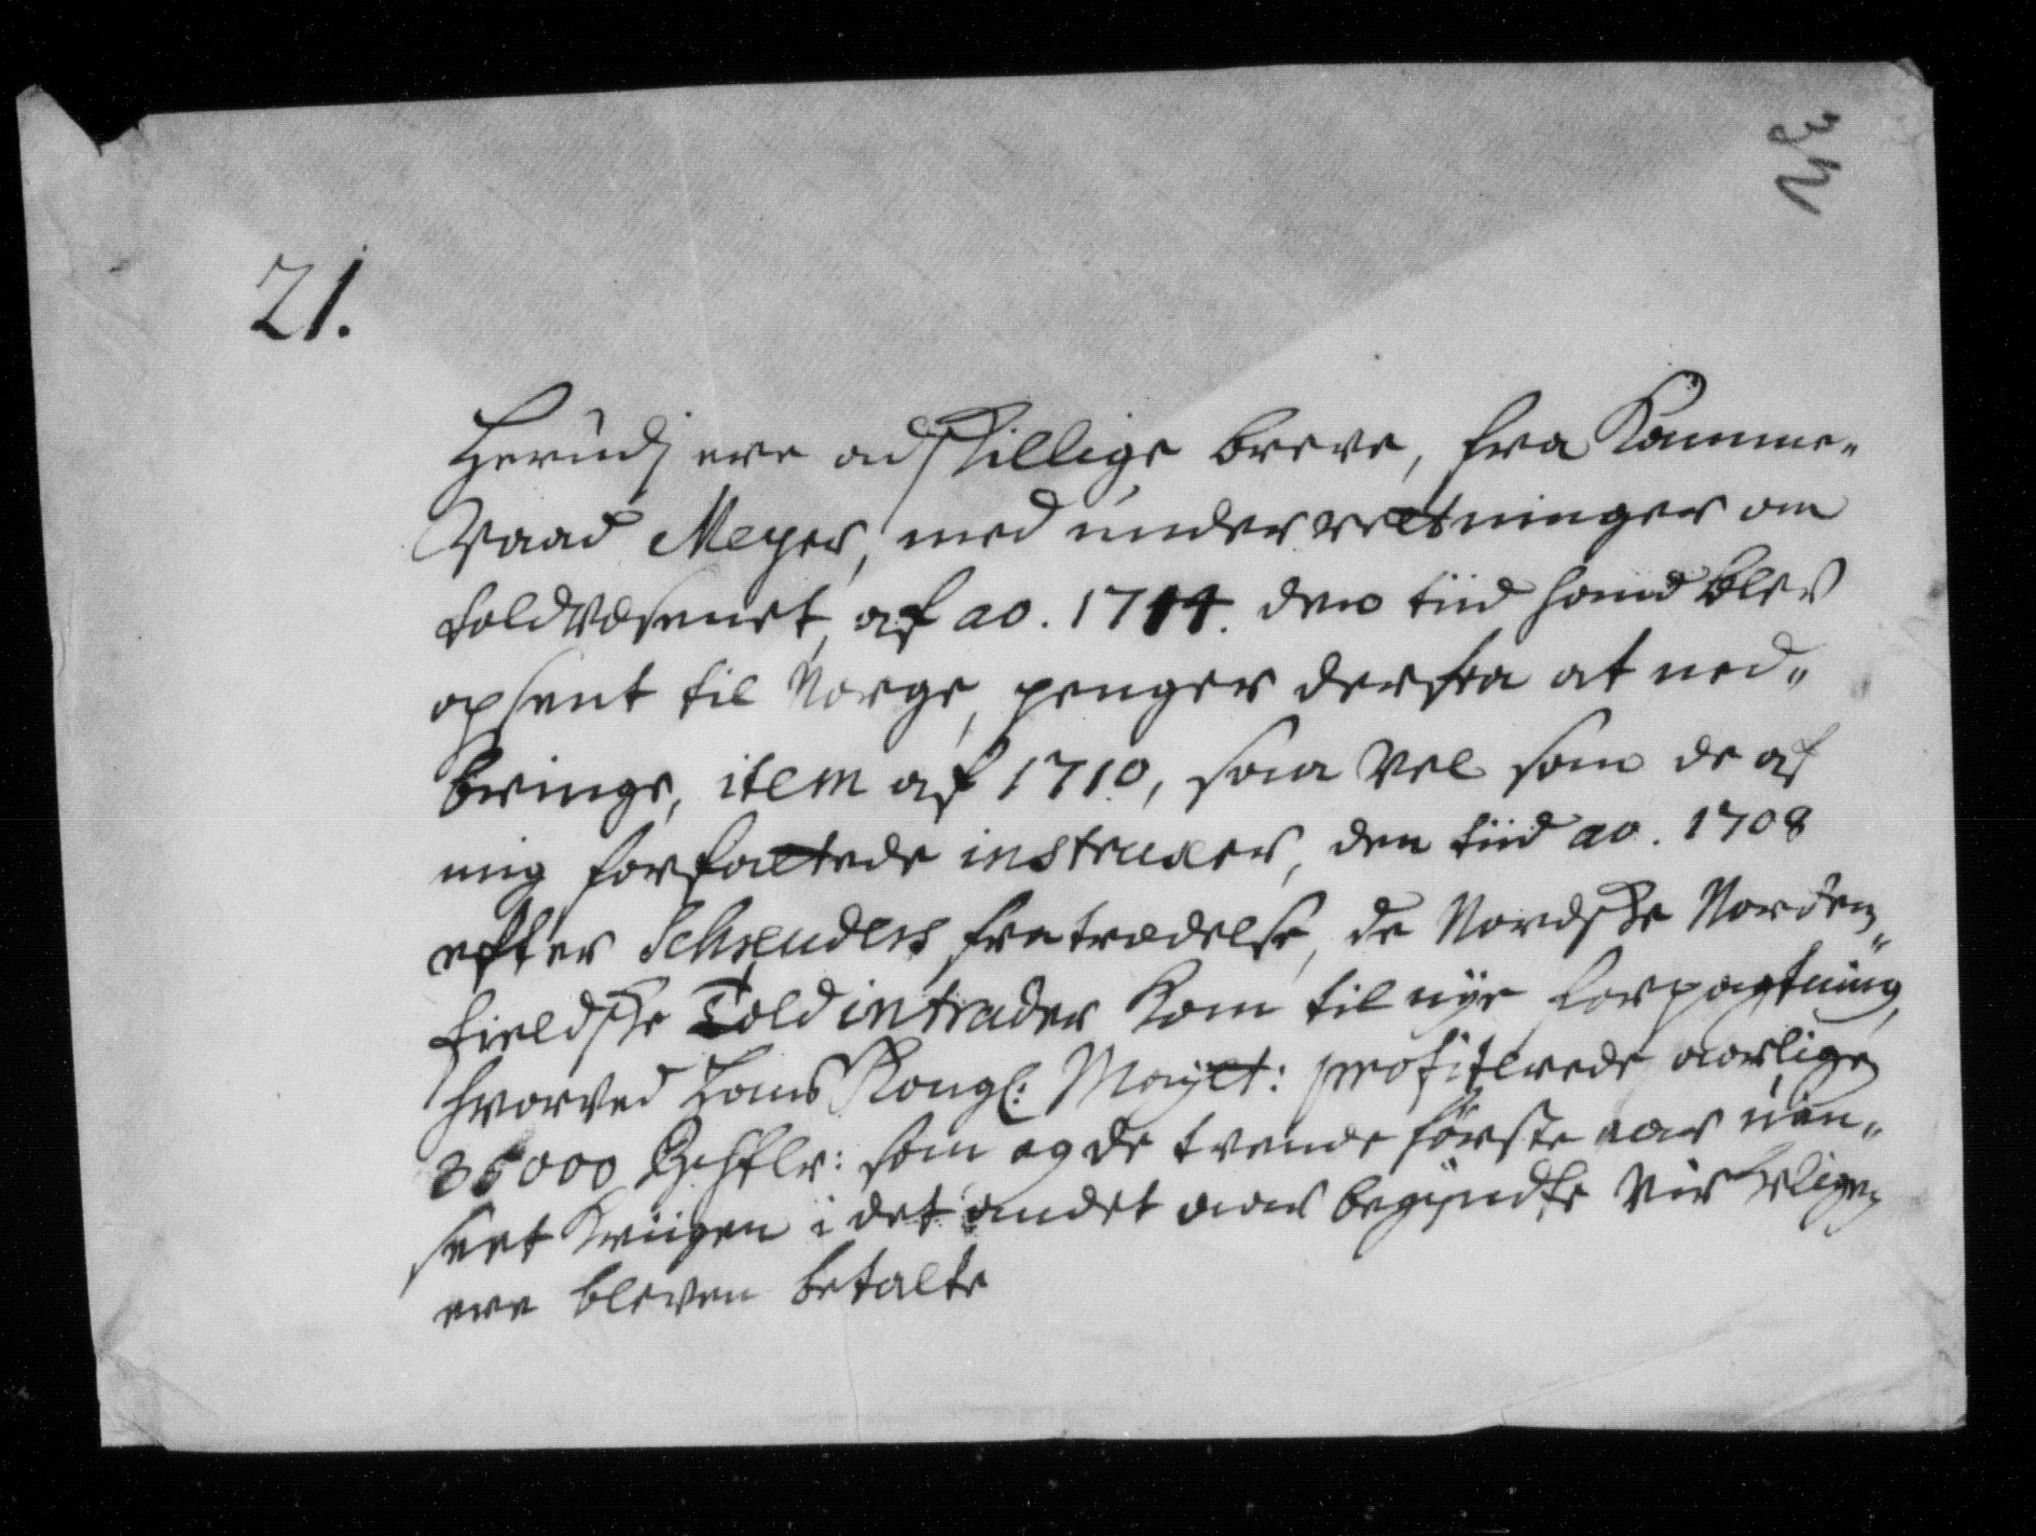 21.
Herudj ere adskillige breve, fra Kamme-
Raad Meyer, med underretninger om
toldvæsenet, af ao. 1714. den tiid hand blev
opsent til Norge, penger derfra at ned-
bringe, item af 1710, saa vel som de af
mig forfattede instruxer, den tiid ao. 1708
efter Schreuders fratrædelse, de Nordske Norden-
fieldske Toldintrader kom til nye forpagtning,
hvorved Hans Kongl. Mayet: profiterede aarligen
36000 Rchstlr: som og de tvende förste aar uan-
seet Kriigen i det andet aar begyndte virkeligen
ere bleven betalte